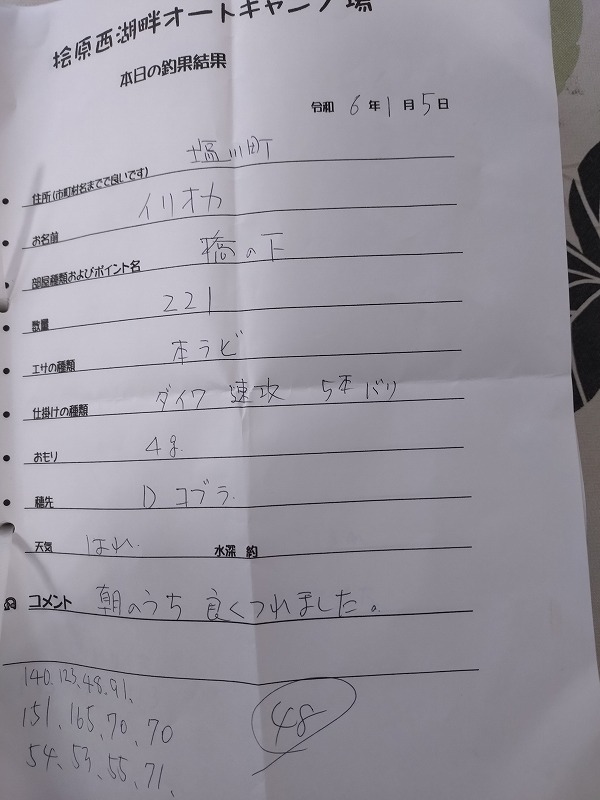 桧原西湖畔オートキャンプ場
本日の釣果結果
令和 6年1月5日
住所(市町村名までで良いです) 塩川町
お名前 イリオカ
部屋種類およびポイント名 橋の下
数量 221
エサの種類 本ラビ
仕掛けの種類 ダイワ 速攻 5本バリ
おもり 4g
穂先 D コブラ
天気 はれ 水深 約
コメント 朝のうち 良くつれました。
140、123、48、91、
151、165、70、70
54、53、55、71、
48